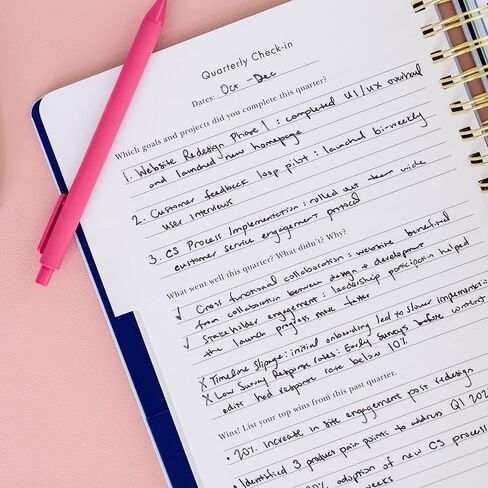 Quarterly Check-in
Dates: Oct - Dec
Which goals and projects did you complete this quarter?
1. Website Redesign Phase 1 : completed UI/UX overhaul
and launched new homepage
2. Customer feedback loop pilot : launched bi-weekly
user interviews
3. CS Process Implementation : rolled out team wide
customer service engagement protocol
What went well this quarter? What didn't? Why?
✓ Cross functional collaboration : website benefited
from collaboration between design + development
✓ Stakeholder engagement : leadership participation helped
the launch progress more faster
X Timeline Slippage : initial onboarding led to slower implementation
X Low Survey Response rates : Early surveys before content
edits had response rate below 10%
Wins! List your top wins from this past quarter.
• 20% increase in site engagement post redesign
• Identified 3 product pain points to address Q1 202
adoption of new CS process
weeks